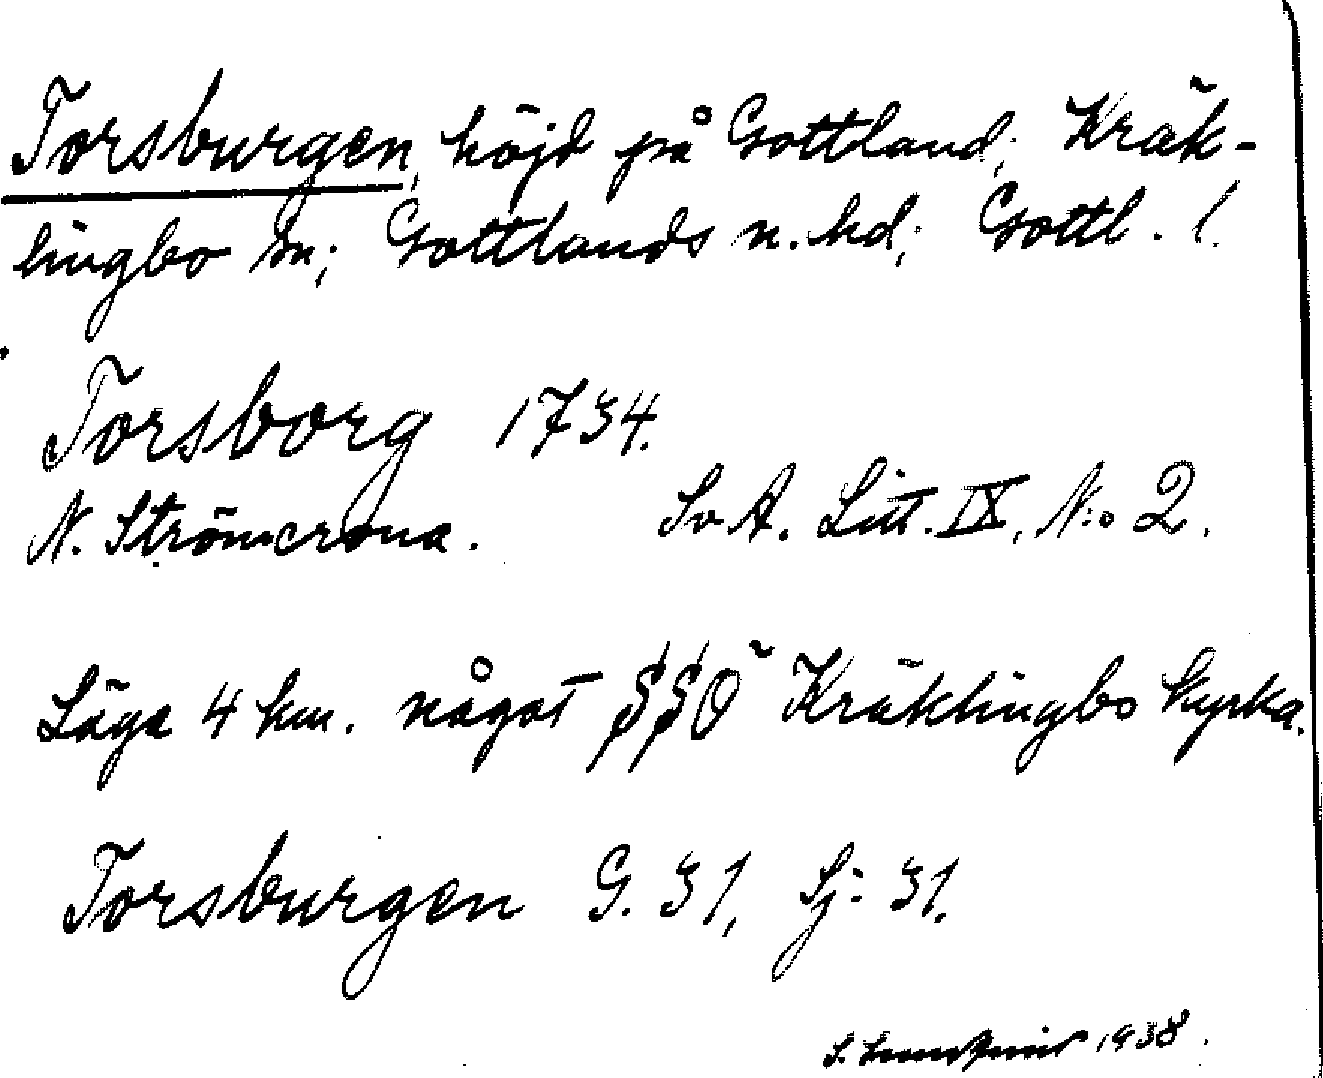 Torsburgen, höjd på Gottland; Kräk-
lingbo sn; Gottlands n. hd; Gottl. l.
Torsborg 1734.
N. Strömcrona. Sv. A. Litt. IX, N:o 2.
Läge 4 km. något SSO Kräklingbo kyrka.
Torsburgen G. 31, Sj: 31.
1938.